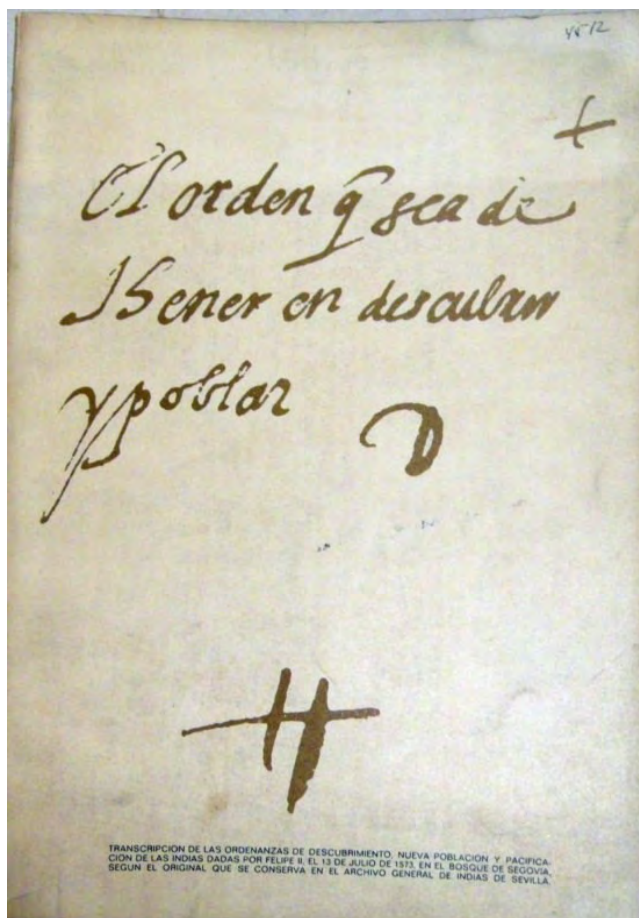 4512
El orden q̃ sea de
thener en descubrir
y poblar
TRANSCRIPCION DE LAS ORDENANZAS DE DESCUBRIMIENTO, NUEVA POBLACION Y PACIFICA-
CION DE LAS INDIAS DADAS POR FELIPE II, EL 13 DE JULIO DE 1573, EN EL BOSQUE DE SEGOVIA,
SEGUN EL ORIGINAL QUE SE CONSERVA EN EL ARCHIVO GENERAL DE INDIAS DE SEVILLA.